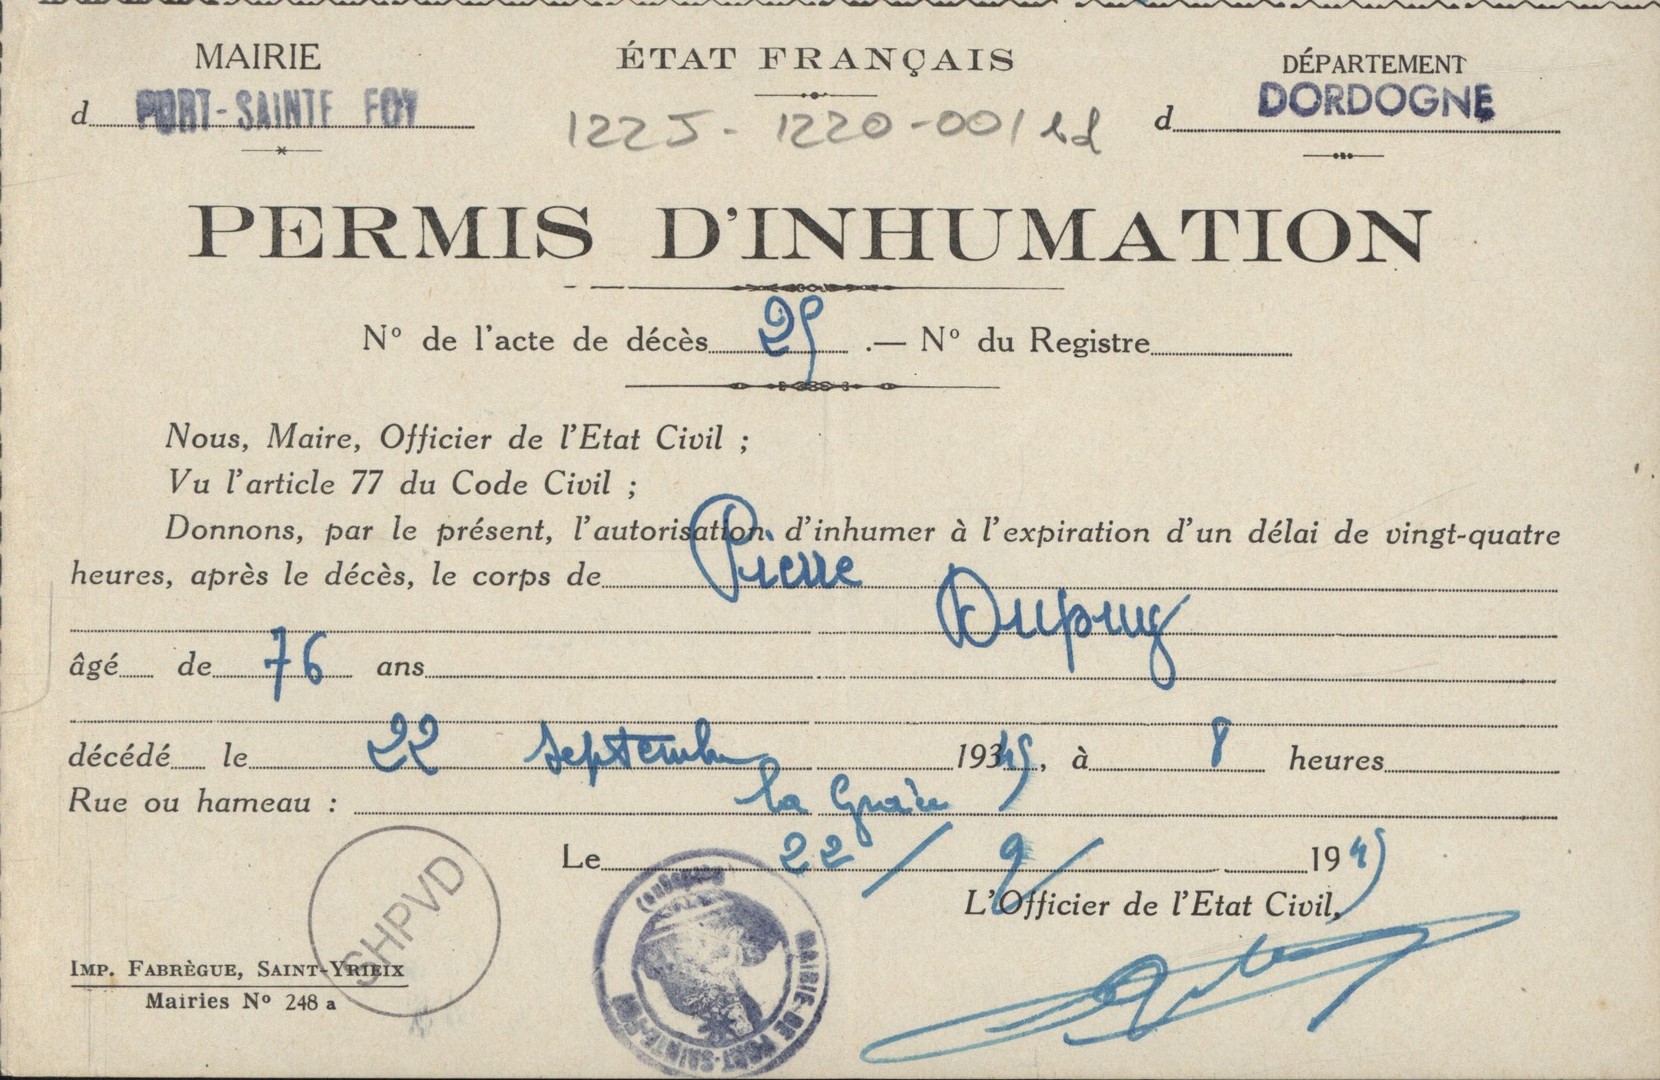 MAIRIE
d PORT-SAINTE FOY
ÉTAT FRANÇAIS
1225-1220-001
DÉPARTEMENT
d DORDOGNE
PERMIS D'INHUMATION
N° de l'acte de décès 25 .— N° du Registre
Nous, Maire, Officier de l'Etat Civil ;
Vu l'article 77 du Code Civil ;
Donnons, par le présent, l'autorisation d'inhumer à l'expiration d'un délai de vingt-quatre
heures, après le décès, le corps de Pierre
Dupuy
âgé de 76 ans
décédé le 22 septembre 1945, à 8 heures
Rue ou hameau : la
Le 22 / 9 / 1945
L'Officier de l'Etat Civil,
SHPVD
(Dordogne)
MAIRIE DE PORT-SAINTE-FOY
IMP. FABRÈGUE, SAINT-YRIEIX
Mairies N° 248 a